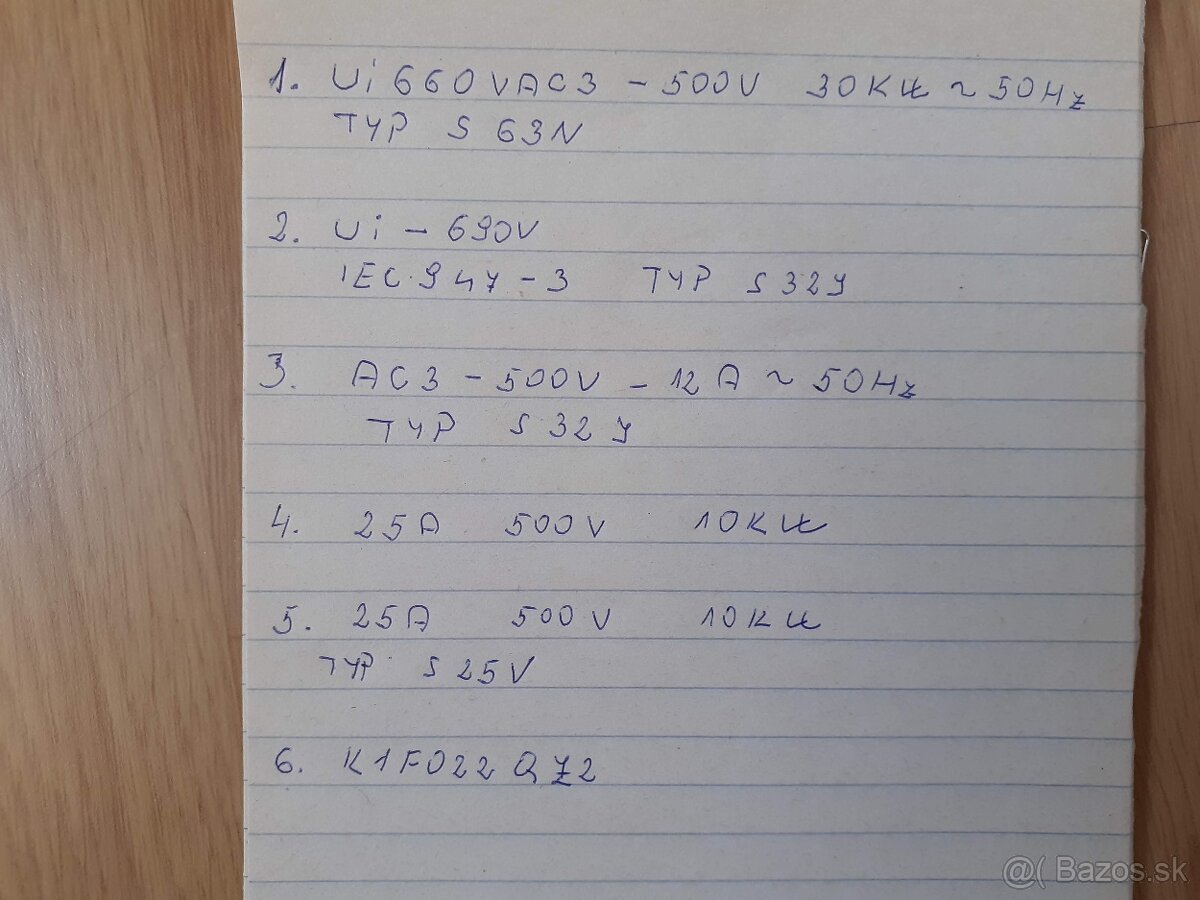 1. Ui 660VAC3 - 500V 30KW ~ 50Hz
TYP S 63N
2. Ui - 690V
IEC 947-3 TYP S 32J
3. AC3 - 500V - 12A ~ 50Hz
TYP S 32 J
4. 25A 500V 10KW
5. 25A 500V 10KW
TYP S 25V
6. K1F022QZ2
@( Bazos.sk